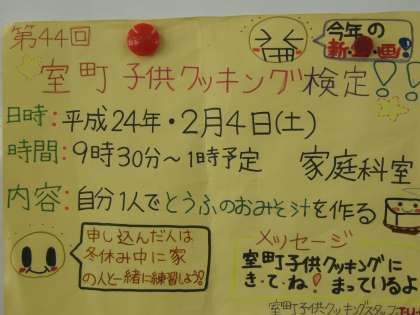 第44回
今年の
新・企・画!
室町 子供クッキング検定!!
日時:平成24年・2月4日(土)
時間:9時30分〜1時予定
家庭科室
内容:自分1人でとうふのおみそ汁を作る
申し込んだ人は
冬休み中に家
の人と一緒に練習しよう。
メッセージ
室町子供クッキングに
き・て・ね!まっているよ
室町子供クッキングスタッフ